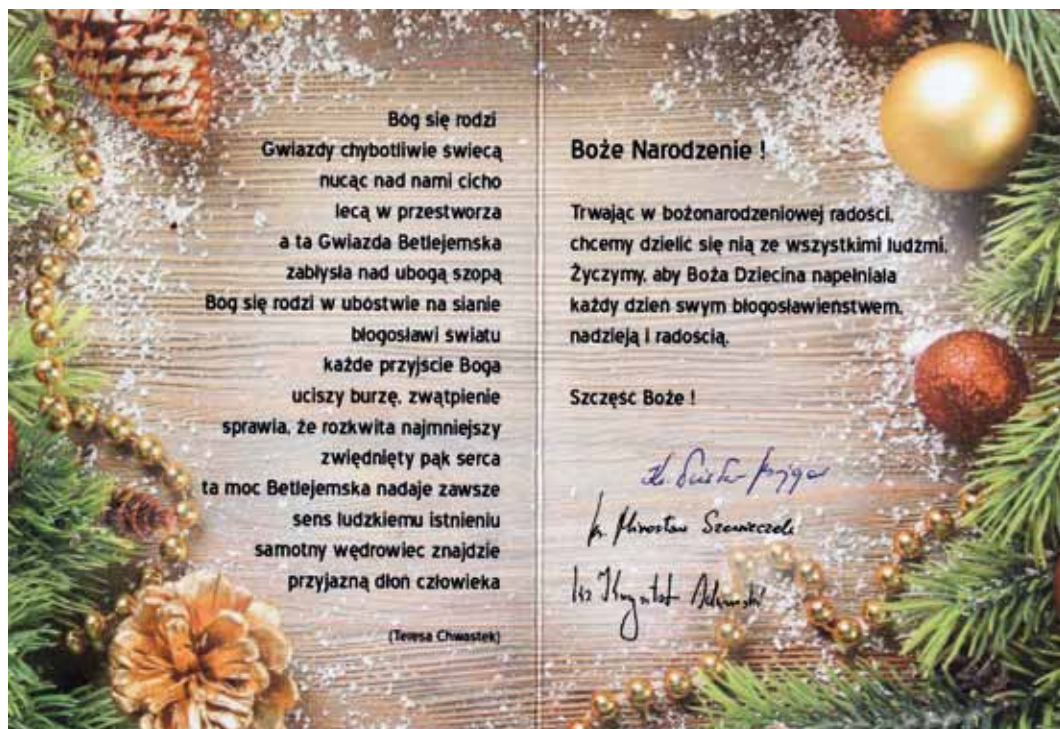 Bóg się rodzi
Gwiazdy chybotliwie świecą
nucąc nad nami cicho
lecą w przestworza
a ta Gwiazda Betlejemska
zabłysła nad ubogą szopą
Bóg się rodzi w ubóstwie na sianie
błogosławi światu
każde przyjście Boga
uciszy burzę, zwątpienie
sprawia, że rozkwita najmniejszy
zwiędnięty pąk serca
ta moc Betlejemska nadaje zawsze
sens ludzkiemu istnieniu
samotny wędrowiec znajdzie
przyjazną dłoń człowieka
(Teresa Chwastek)
Boże Narodzenie !
Trwając w bożonarodzeniowej radości,
chcemy dzielić się nią ze wszystkimi ludźmi.
Życzymy, aby Boża Dziecina napełniała
każdy dzień swym błogosławieństwem,
nadzieją i radością.
Szczęść Boże !
ks. Mirosław
ks Krzysztof Adamski